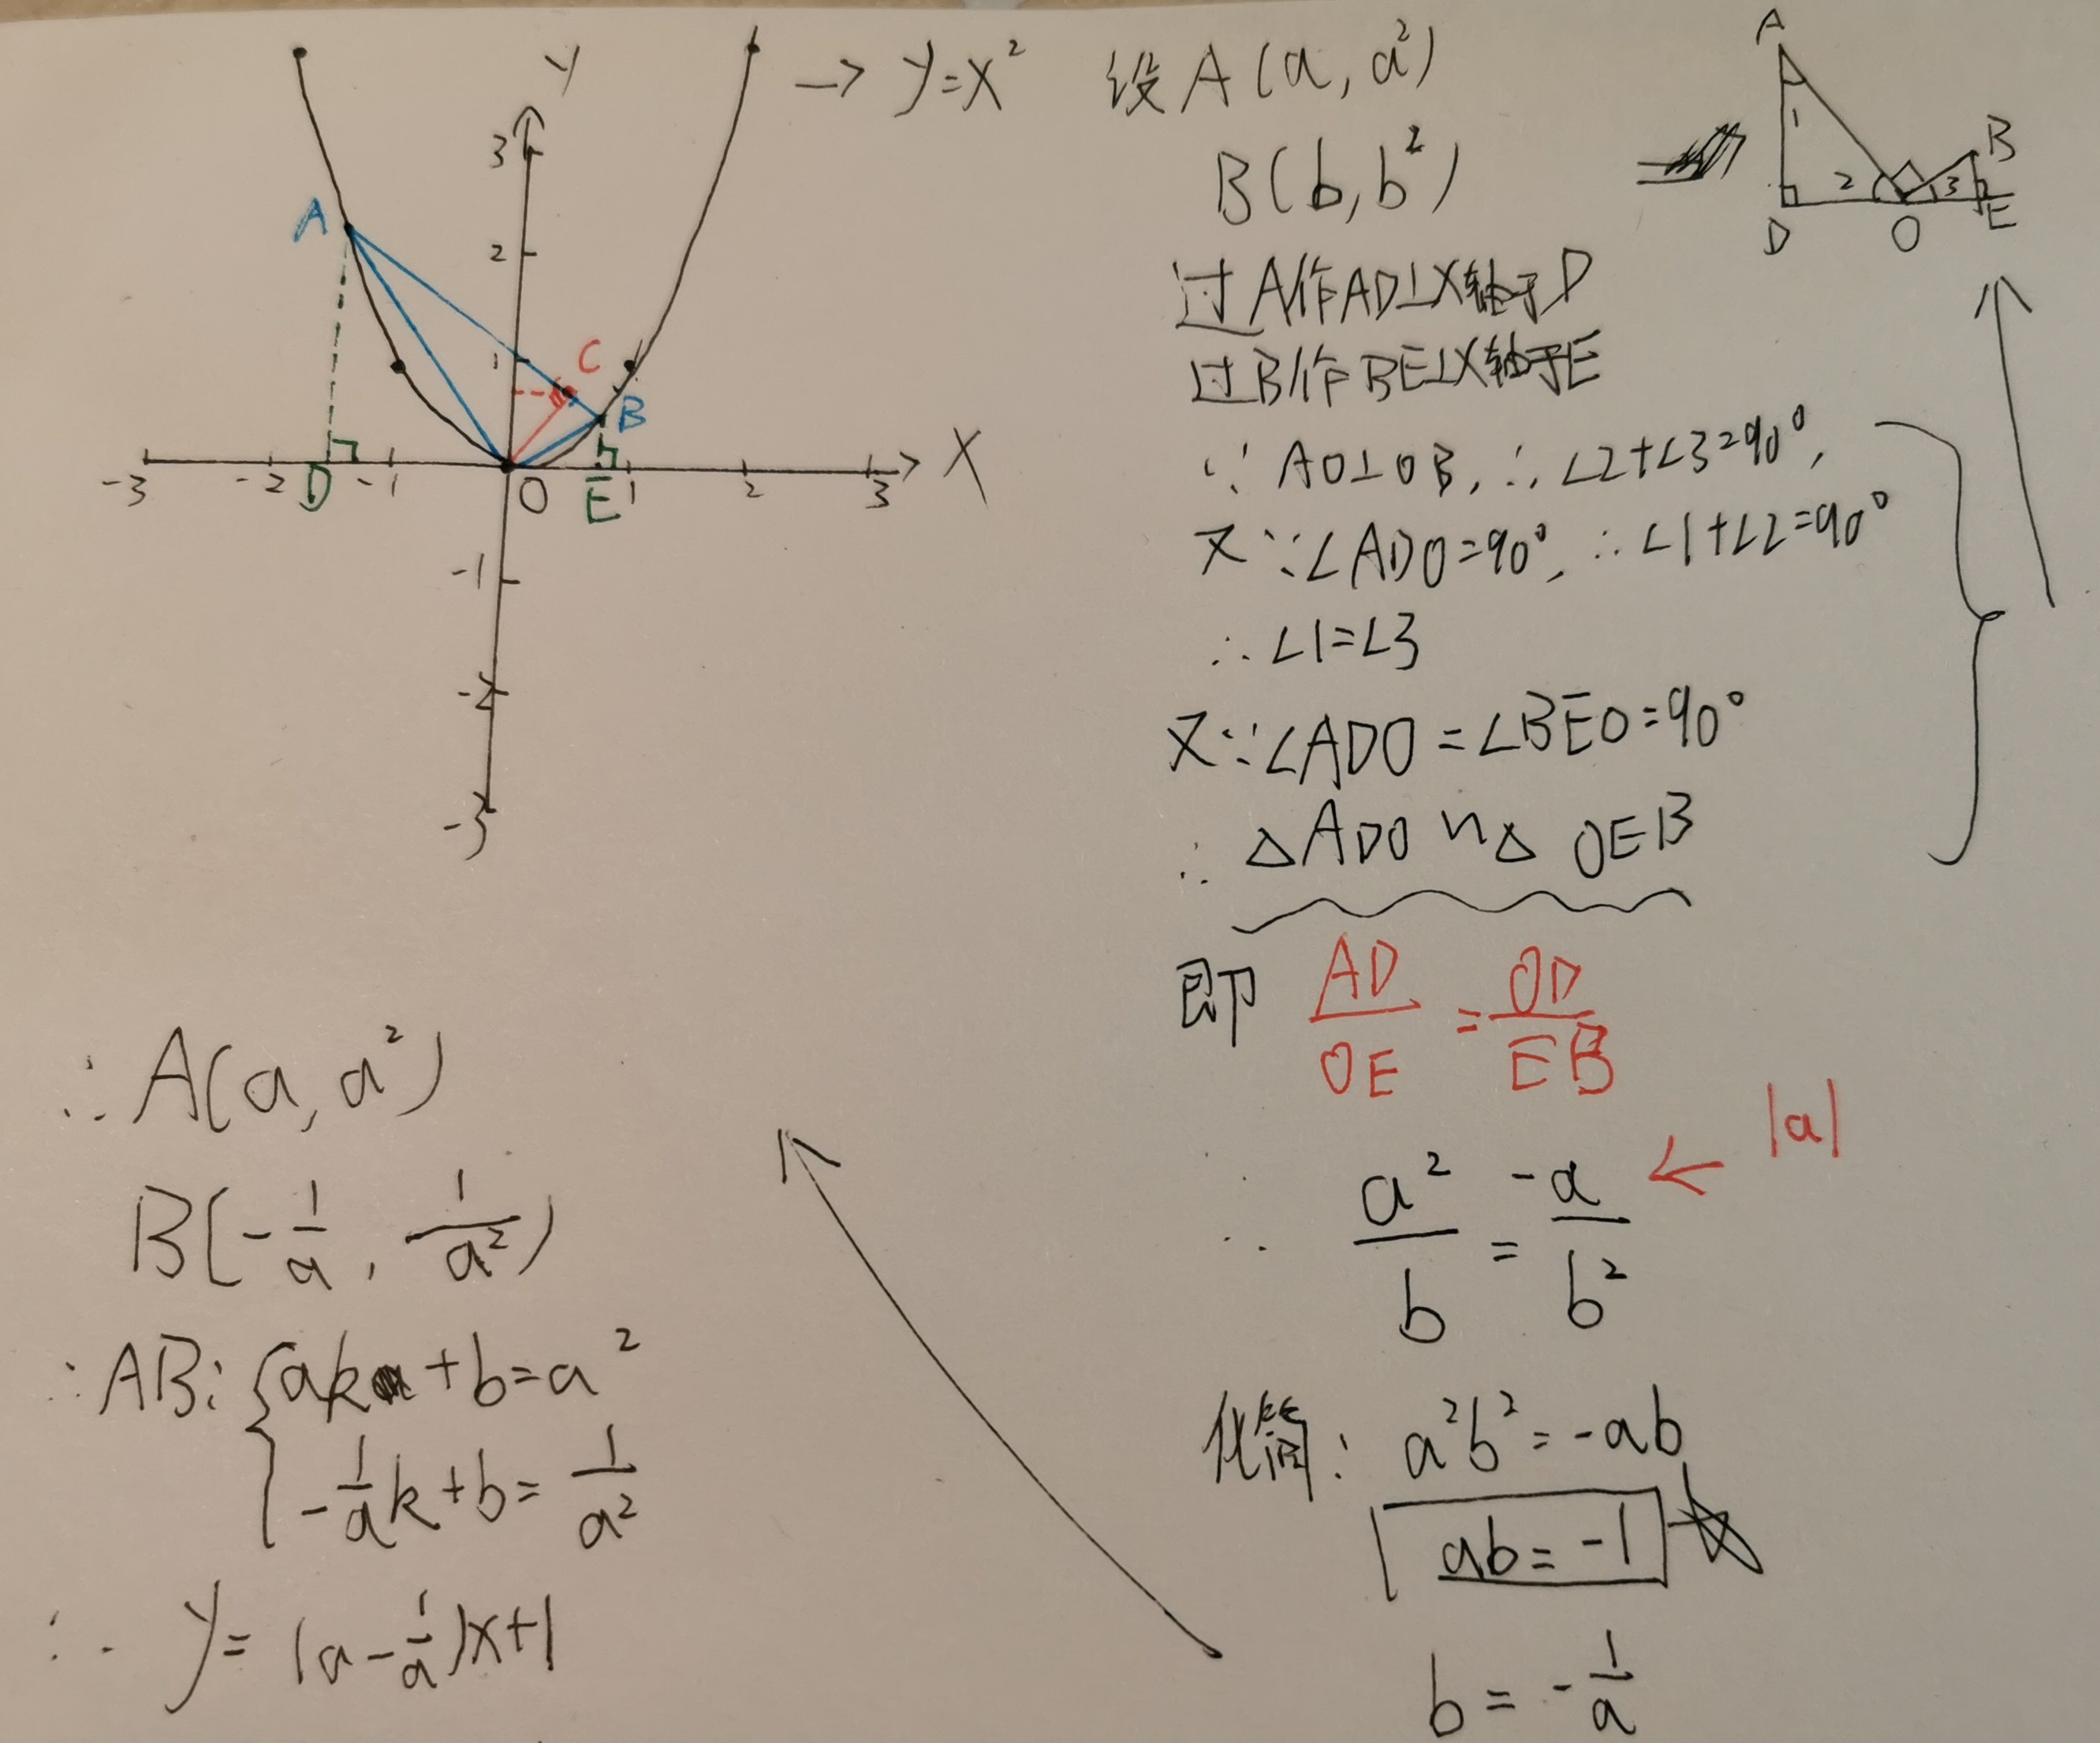 Y
→ y=x²
3
A
2
1
C
B
-3
-2
D
-1
O
E
1
2
3
X
-1
-2
-3
设A(a,a²)
B(b,b²)
A
1
2
3
B
D
O
E
过A作AD⊥X轴于D
过B作BE⊥X轴于E
∵AO⊥OB,∴∠2+∠3=90°,
又∵∠ADO=90°,∴∠1+∠2=90°
∴∠1=∠3
又∵∠ADO=∠BEO=90°
∴△ADO∽△OEB
即 AD/OE=OD/EB
∴ a²/b=-a/b² ← |a|
化简: a²b²=-ab
ab=-1
b=-1/a
∴A(a,a²)
B(-1/a,1/a²)
∴AB:{ak+b=a²
-1/a k+b=1/a²
∴y=(a-1/a)x+1